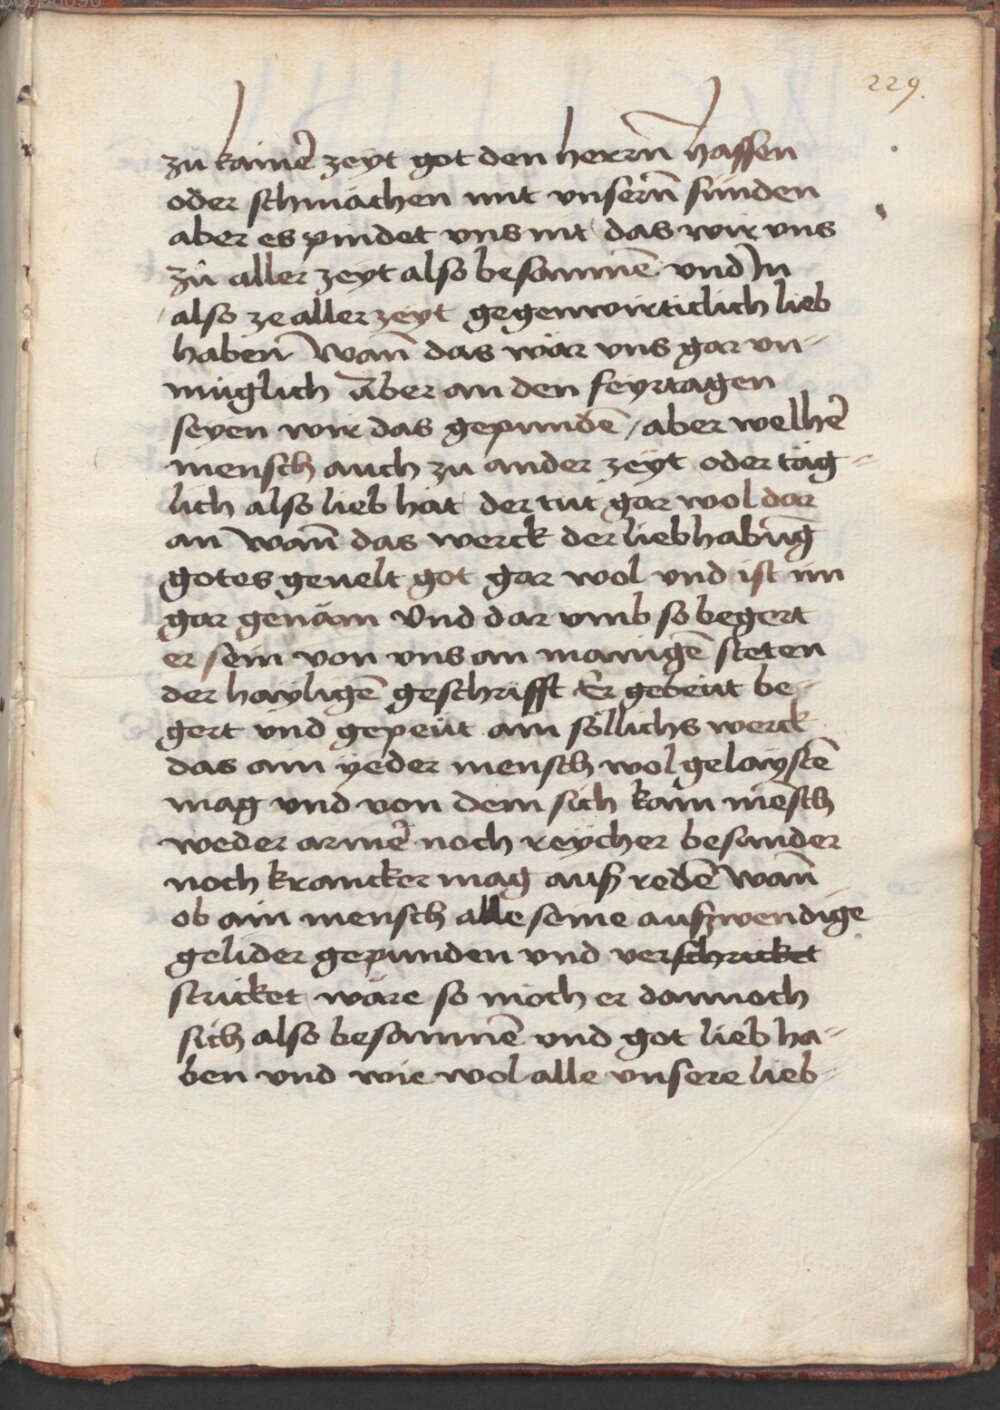 229.
zu kainer̄ zeyt got den herrn̄ hassen
oder schmächen mit vnsern̄ sünden
aber es pindet vns nit das wir vns
zů aller zeyt also besamnē vnd In
also ze aller zeyt gegenwirticlich lieb
haben̄ Wan̄ das wär vns gar vn-
müglich aber an den feyrtagen
seyen wir das gepundē / aber welher̄
mensch auch zu ander zeyt oder täg=
lich also lieb hat der tut gar wol dar
an Wan̄ das werck der liebhabūg
gotes geuelt got gar wol vnd ist im
gar genäm Vnd dar vmb so begert
er sein von vns an manigē steten
der hayligē geschrifft Er gebeüt be-
gert vnd gepeüt ain söllichs werck
das ain yeder mensch wol gelaystē
mag vnd von dem sich kain mēsch
weder armer̄ noch reycher besunder
noch krancker mag ausz redē Wan̄
ob ain mensch alle seine auszwendige
gelider gepunden vnd verschricket
stricket wäre so möch er dannoch
sich also besamnē vnd got lieb ha=
ben vnd wie wol alle vnsere lieb=